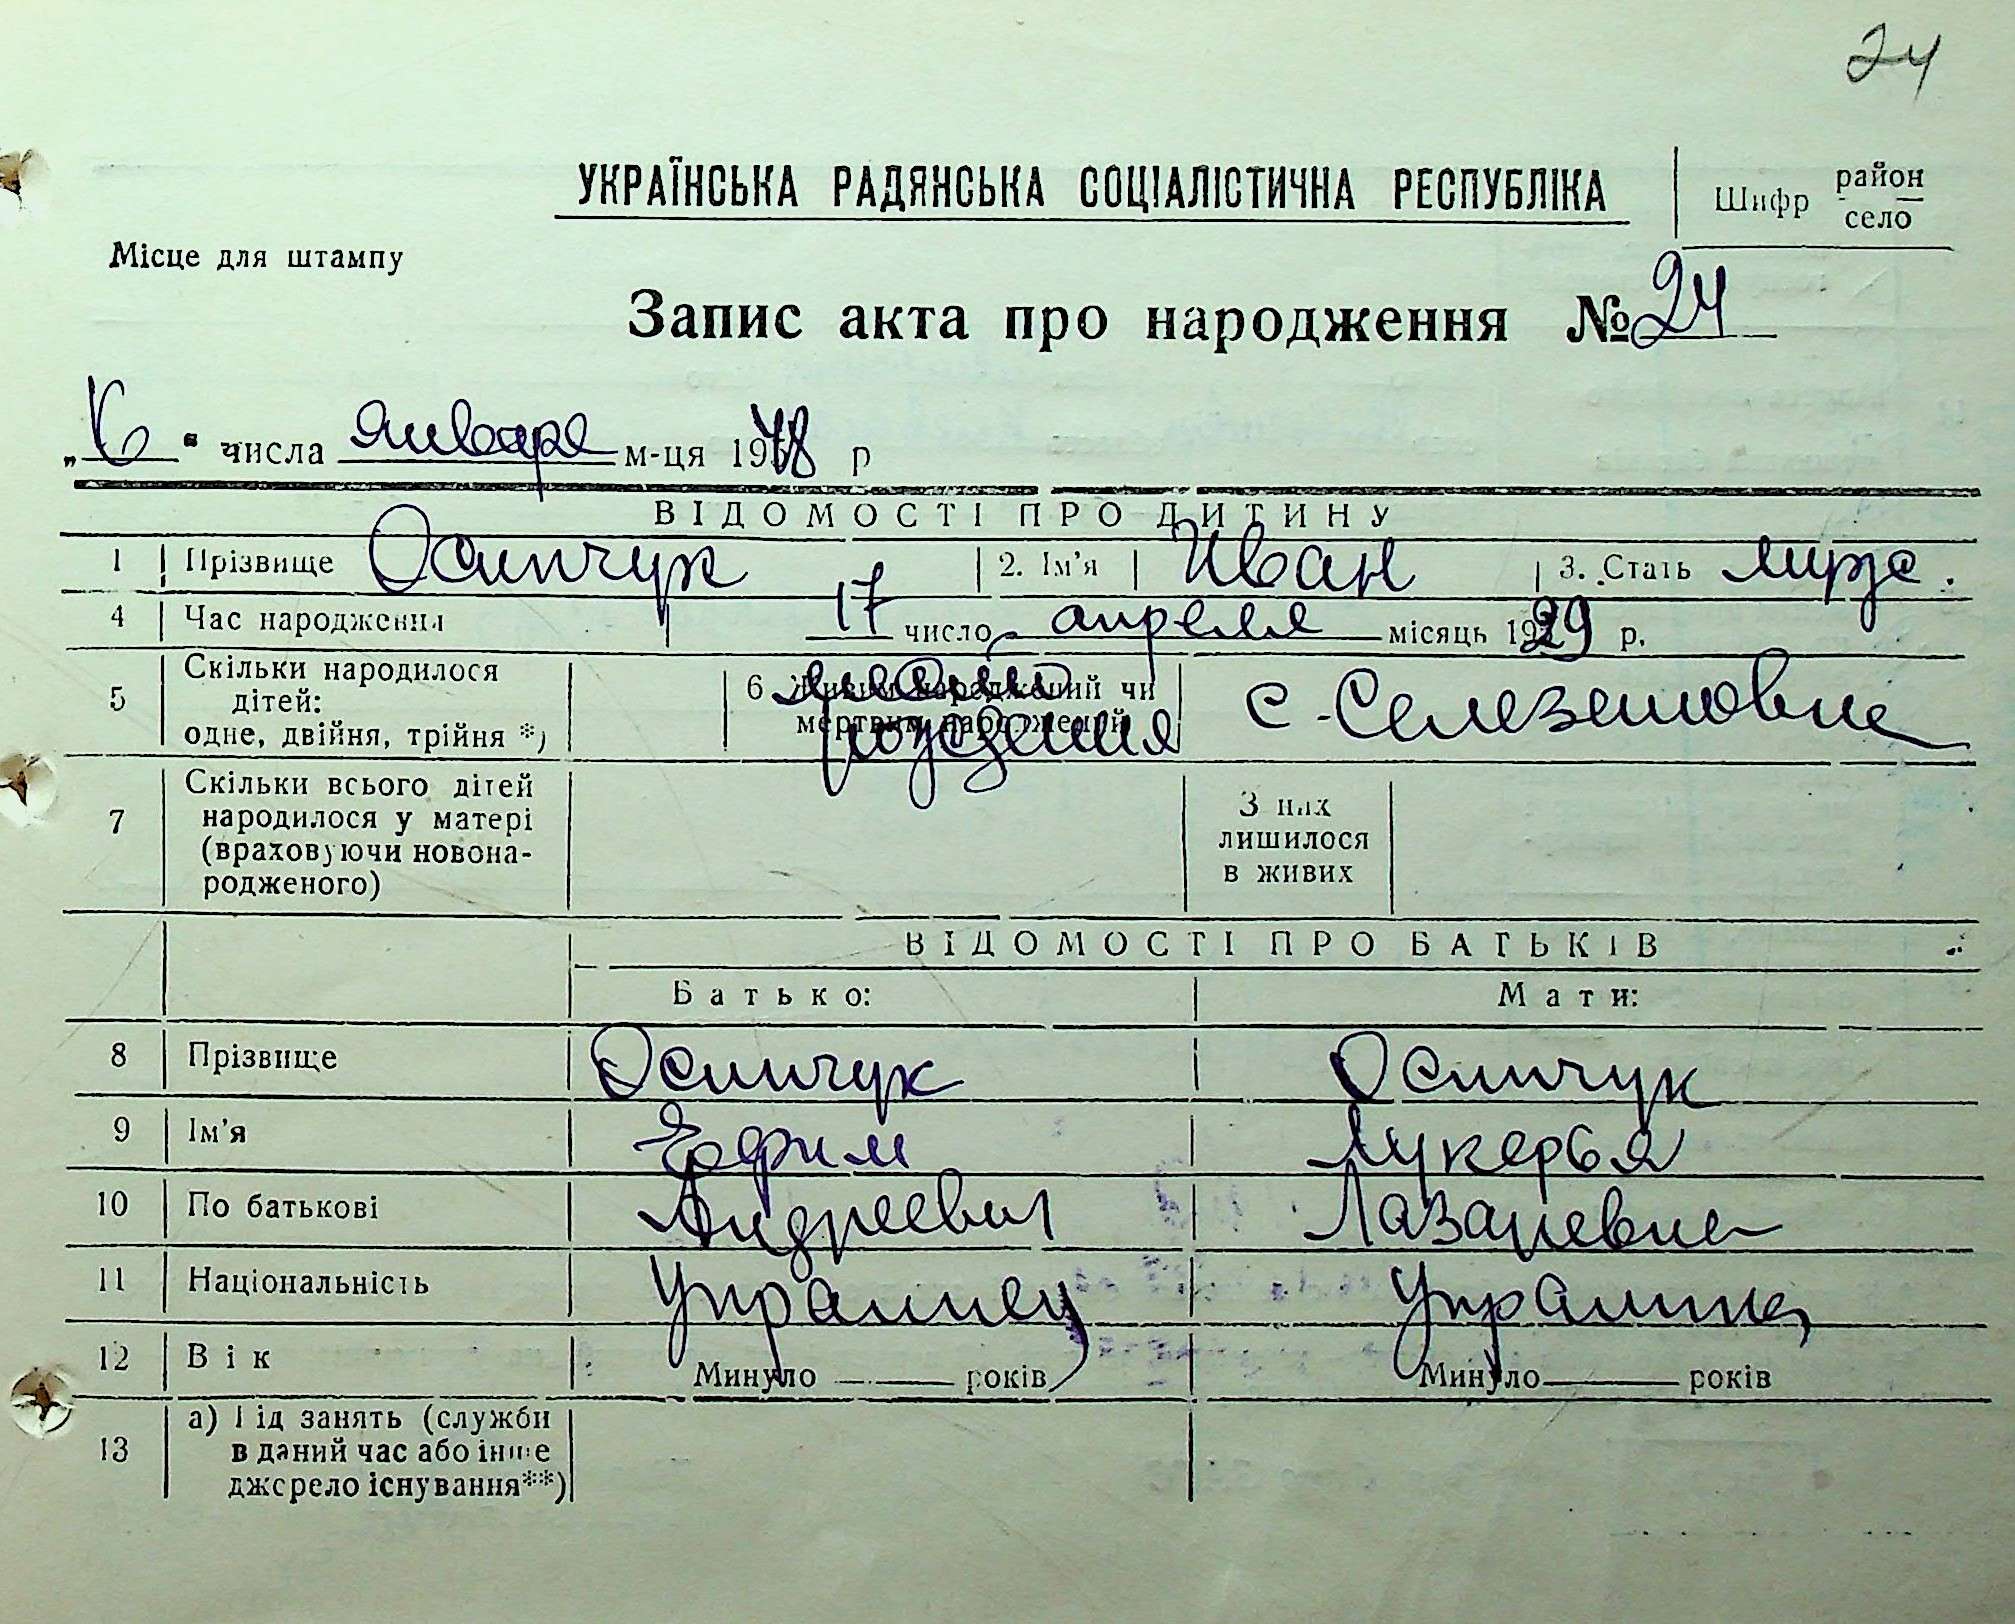 24
УКРАЇНСЬКА РАДЯНСЬКА СОЦІАЛІСТИЧНА РЕСПУБЛІКА
Шифр район
село
Місце для штампу
Запис акта про народження № 24
„6" числа января м-ця 1948 р
ВІДОМОСТІ ПРО ДИТИНУ
1 Прізвище Осипчук 2. Ім'я Иван 3. Стать мужс.
4 Час народження 17 число апреля місяць 1929 р.
5 Скільки народилося дітей: одне, двійня, трійня *) 6 Живим народжений чи мертвим народжений место рождения с. Селезеновка
7 Скільки всього дітей народилося у матері (враховуючи новонародженого) З них лишилося в живих
ВІДОМОСТІ ПРО БАТЬКІВ
Батько: Мати:
8 Прізвище Осипчук Осипчук
9 Ім'я Ефим Лукерья
10 По батькові Андреевич Лазаревна
11 Національність Украинец Украинка
12 Вік Минуло років Минуло років
13 а) Рід занять (служби в даний час або інше джерело існування**)